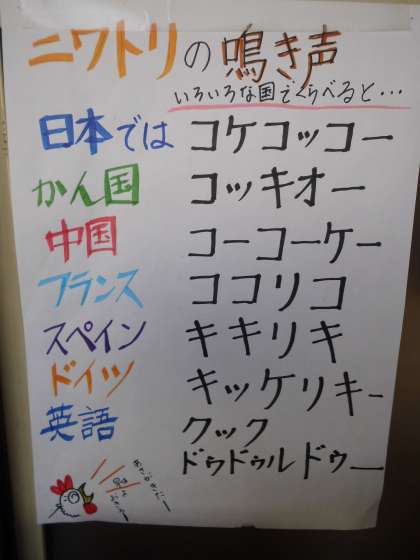 ニワトリの鳴き声
いろいろな国でくらべると…
日本では コケコッコー
かん国 コッキオー
中国 コーコーケー
フランス ココリコ
スペイン キキリキ
ドイツ キッケリキー
英語 クック
ドゥドゥルドゥー